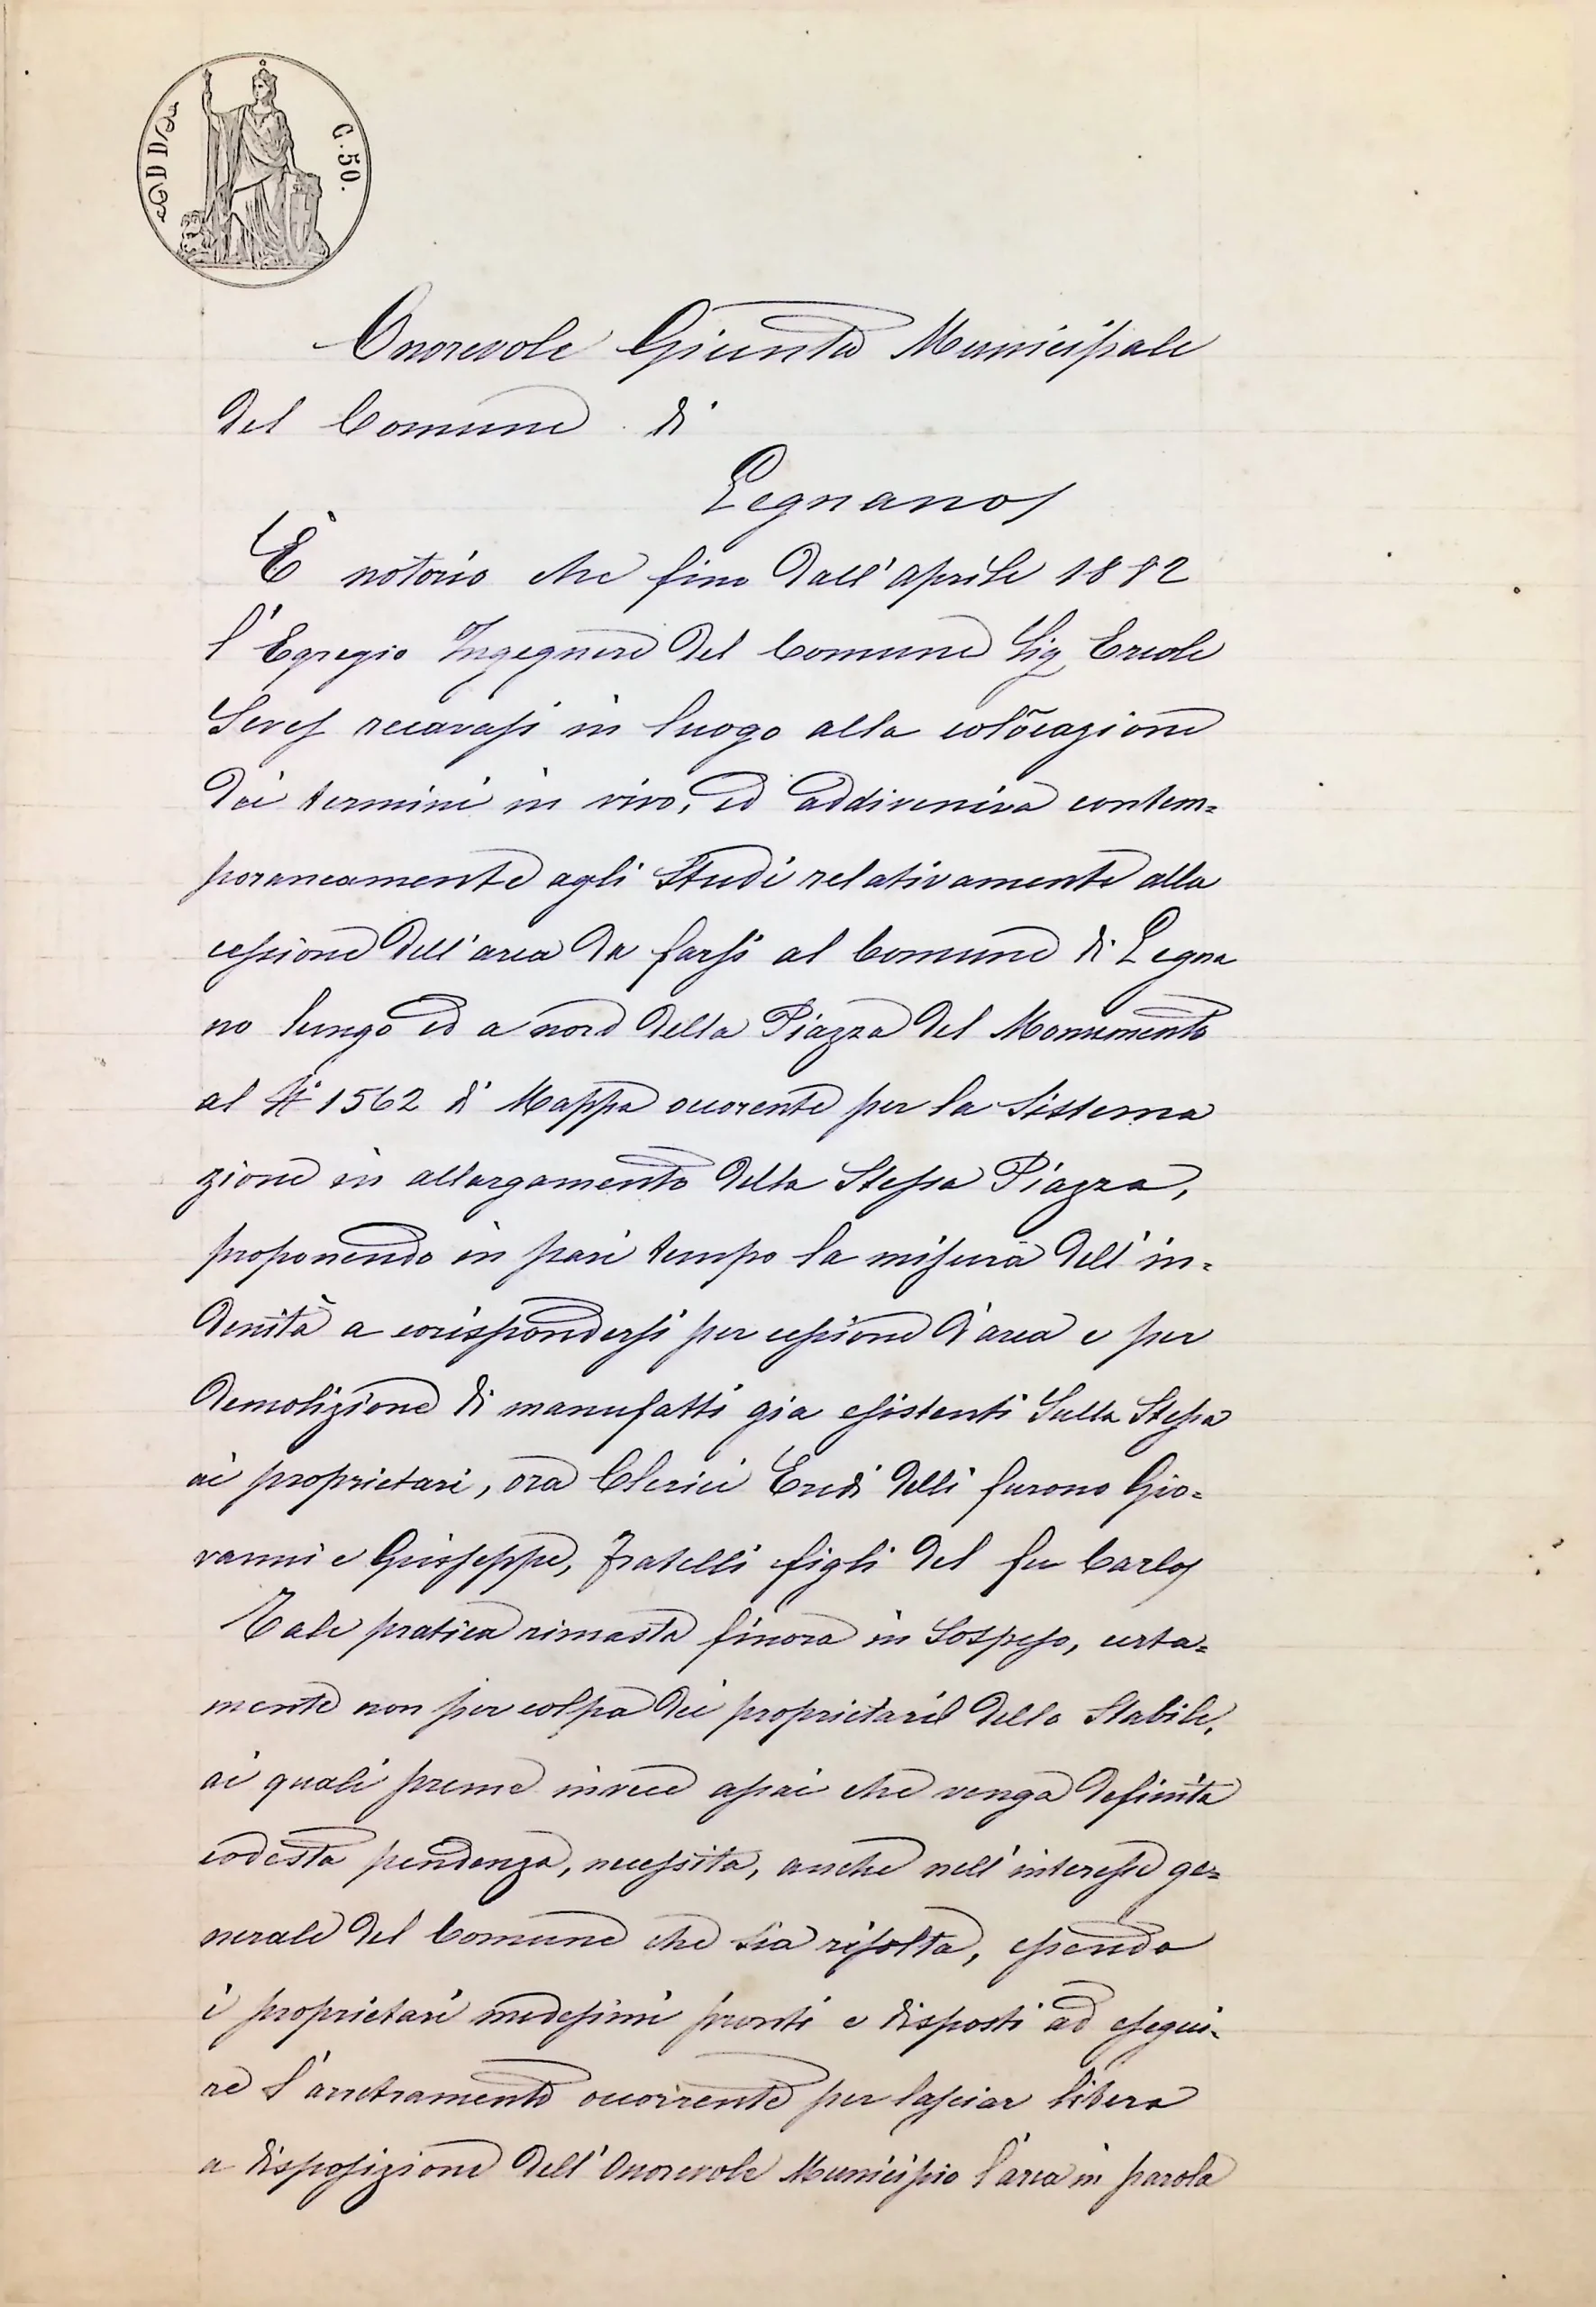 C. 50.
Onorevole Giunta Municipale
del Comune di
Legnano
È notorio che fino dall'aprile 1892
l'Egregio Ingegnere del Comune Sig. Ercole
Seves recavasi in luogo alla colōcazione
dei termini in vivo, ed addiveniva contem=
poraneamente agli studi relativamente alla
cessione dell'area da farsi al Comune di Legna
no lungo ed a nord della Piazza del Monumento
al N° 1562 di Mappa occorente per la sistema
zione in allargamento della stessa Piazza,
proponendo in pari tempo la misura dell'in=
denità a corispondersi per cessione d'area e per
demolizione di manufatti gia esistenti sulla stessa
ai proprietari, ora Clerici Eredi delli furono Gio=
vanni e Giuseppe, fratelli figli del fu Carlo
Tale pratica rimasta finora in sospeso, certa=
mente non per colpa dei proprietari dello stabile,
ai quali preme invece assai che venga definita
codesta pendenza, necessita, anche nell'interesse ge=
nerale del Comune che sia risolta, essendo
i proprietari medesimi pronti e disposti ad esegui=
re l'arretramento occorrente per lasciar libera
a disposizione dell'Onorevole Municipio l'area in parola